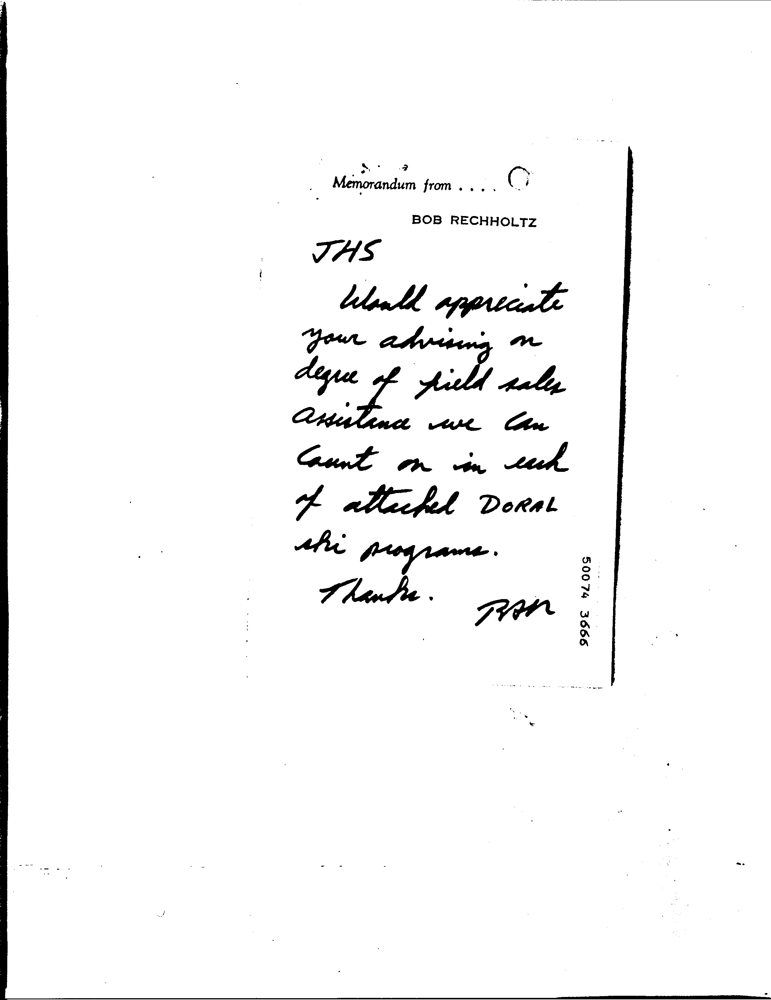 Memorandum from . . . .
BOB RECHHOLTZ
JHS
Would appreciate
your advising on
degree of field sales
assistance we can
count on in each
of attached DORAL
ski programs.
Thanks.
RAR
50074 3666